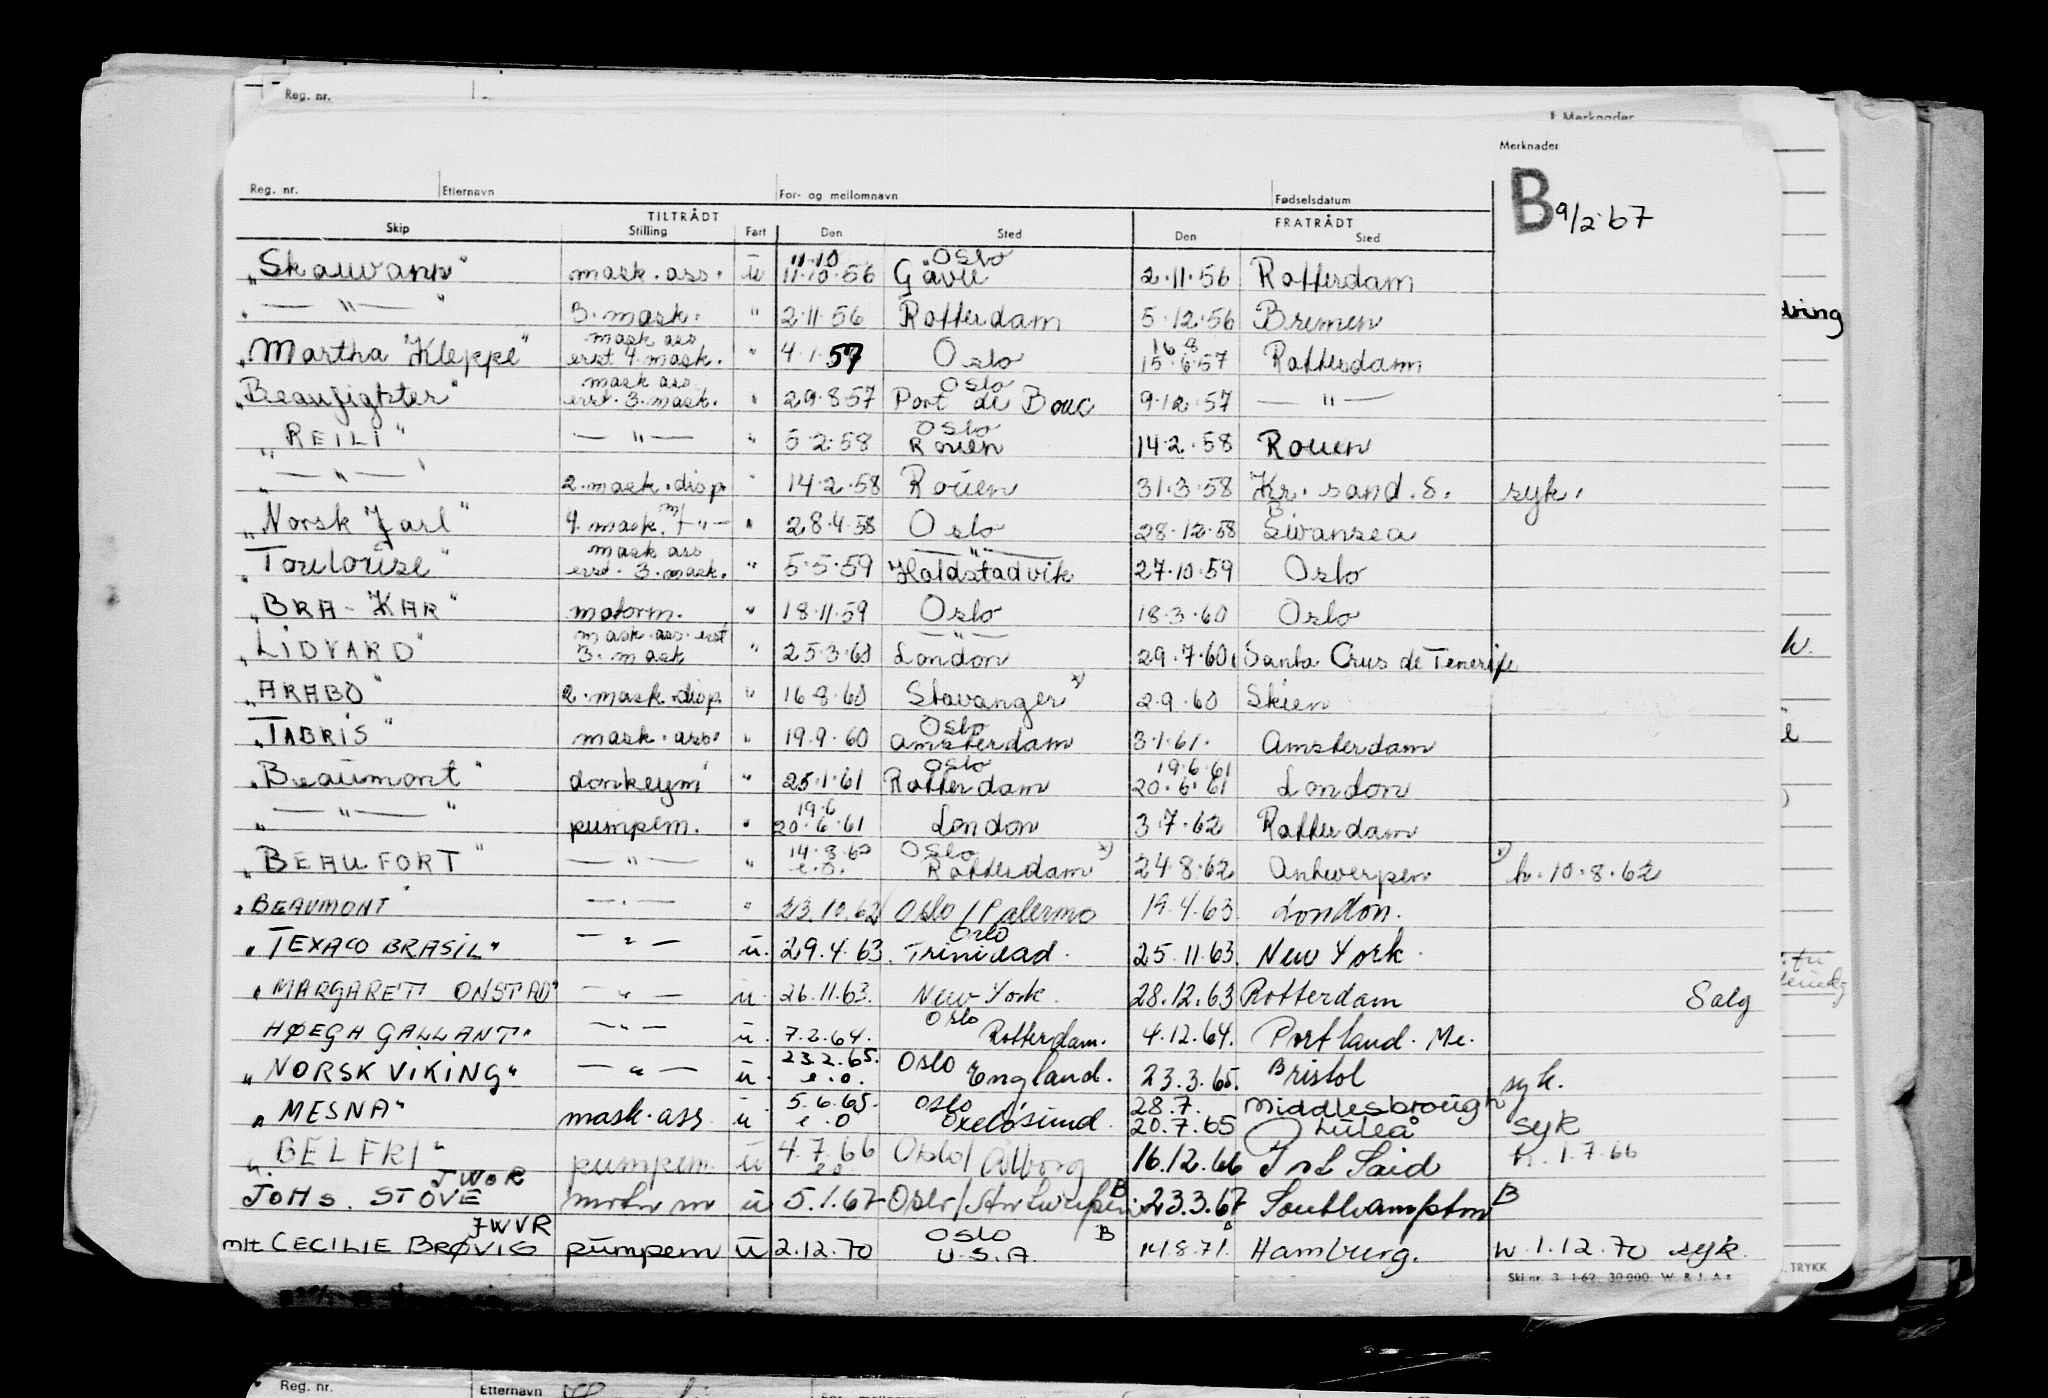 Reg. nr.
Merknader
Merknader
Reg. nr. Etternavn For- og mellomnavn Fødselsdatum
B 9/2.67
TILTRÅDT FRATRÅDT
Skip Stilling Fart Den Sted Den Sted
11.10 Oslo
"Skauvann" mask. ass. u 11.10.56 Gävle 2.11.56 Rotterdam
" — " — " 3. mask. " 2.11.56 Rotterdam 5.12.56 Bremen
mask ass 16 8
"Martha Kleppe" erst. 4. mask. " 4.1.57 Oslo 15.6.57 Rotterdam
mask ass. Oslo
"Beaufighter" erst. 3. mask. " 29.8.57 Port de Bouc 9.12.57 — " —
Oslo
"REILI" — " — " 5.2.58 Rouen 14.2.58 Rouen
" — " — " 2. mask. disp. " 14.2.58 Rouen 31.3.58 Kr. sand. S. syk.
"Norsk Jarl" 4. mask. m/ — " — " 28.4.58 Oslo 28.12.58 Swansea
mask ass — " —
"Toulouse" erst. 3. mask. " 5.5.59 Holdstadvik 27.10.59 Oslo
"BRA-KAR" motorm. " 18.11.59 Oslo 18.3.60 Oslo
mask. ass. erst — " —
"LIDVARD" 3. mask " 25.3.60 London 29.7.60 Santa Crus de Tenerife
"ARABO" 2. mask. disp. " 16.8.60 Stavanger x) 2.9.60 Skien
Oslo
"TABRIS" mask. ass. " 19.9.60 Amsterdam 3.1.61. Amsterdam
Oslo 19.6.61
"Beaumont" donkeym " 25.1.61 Rotterdam 20.6.61 London
19.6
" — " — " pumpem. " 20.6.61 London 3.7.62 Rotterdam
14.8.62 Oslo
"BEAUFORT" — " — " e.o. Rotterdam x) 24.8.62 Antwerpen x) h. 10.8.62
"BEAUMONT" — " — " 23.10.62 Oslo/Palermo 19.4.63. London.
Oslo
"TEXACO BRASIL" — " — u. 29.4.63. Trinidad. 25.11.63. New York.
"MARGARET ONSTAD" — " — u. 26.11.63. New York. 28.12.63 Rotterdam Salg
Oslo
HØEGH GALLANT" — " — u. 7.2.64. Rotterdam. 4.12.64. Portland. Me.
23.2.65. Oslo
"NORSK VIKING" — " — u. e.o. England. 23.3.65. Bristol syk.
5.6.65. Oslo 28.7. Middlesbrough
"MESNA" mask. ass u e.o Oxelösund. 20.7.65 Luleå syk
"BELFRI" pumpem. u 4.7.66 e.o Oslo/Ålborg 16.12.66 Port Said h. 1.7.66
JWOR
JOHS. STOVE motorm u 5.1.67 Oslo/Antwerpen B 23.3.67 Southampton B
JWVR Oslo B
mlt CECILIE BRØVIG pumpem u 2.12.70 U.S.A. 14.8.71. Hamburg. h. 1.12.70 syk.
Skj.nr. 3. 1-62. 30 000. W. & J. As
TRYKK
Reg. nr. Etternavn